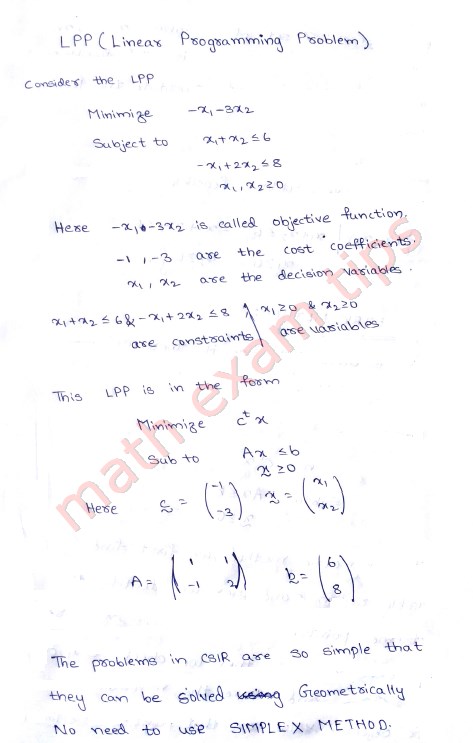 LPP (Linear Programming Problem)
Consider the LPP
Minimize -x₁-3x₂
Subject to x₁+x₂≤6
-x₁+2x₂≤8
x₁,x₂≥0
Here -x₁-3x₂ is called objective function.
-1, -3 are the cost coefficients.
x₁, x₂ are the decision variables.
x₁+x₂≤6 & -x₁+2x₂≤8 x₁≥0 & x₂≥0
are constraints are variables
This LPP is in the form
Minimize cᵗx
Sub to Ax≤b
x≥0
Here c = (-1 -3) x = (x₁ x₂)
A = (1 1 -1 2) b = (6 8)
The problems in CSIR are so simple that
they can be solved using Geometrically
No need to use SIMPLEX METHOD.
math exam tips